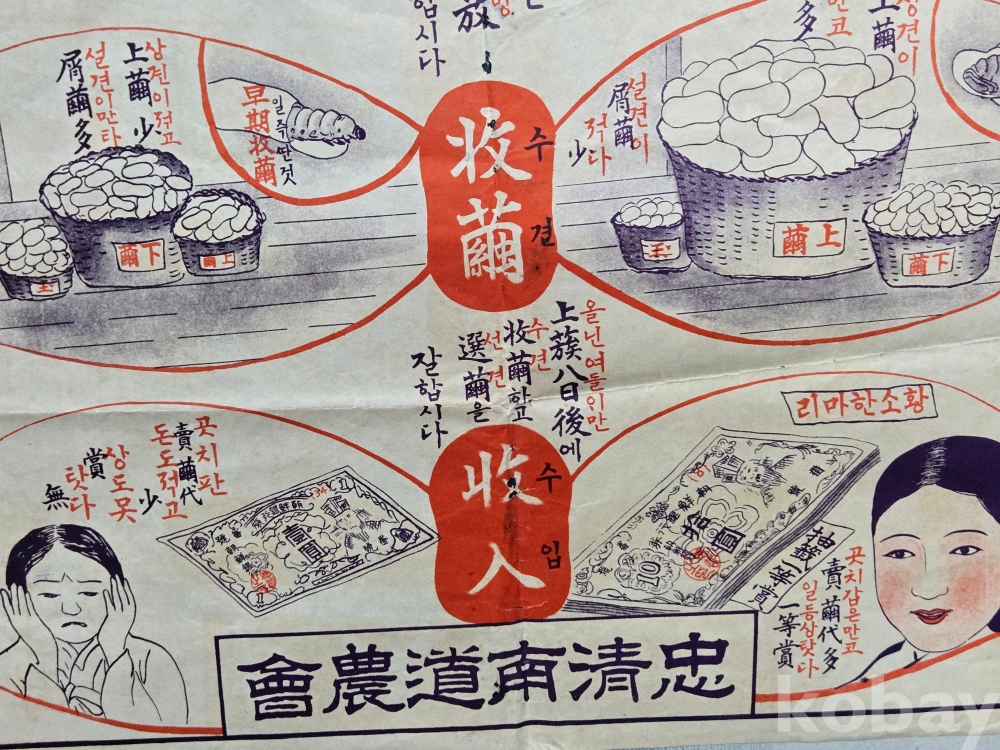 蔟
시다
견이
上繭
多
설견이
屑繭
적다
少
上繭
下繭
玉
收繭
수견
早期收繭
일즉딴것
상견이적고
上繭少
설견이만타
屑繭多
下繭
上繭
玉
올닌여들
上蔟八日後에
수견
收繭하고
선견
選繭을
잘합시다
收入
수입
황소한마리
拾圓
10
抽籤一等賞
곳치갑은만코
賣繭代多
일등상탓다
一等賞
壹圓
곳치판
賣繭代
돈도적고
少
상도못
賞
탓다
無
忠清南道農會
kobay